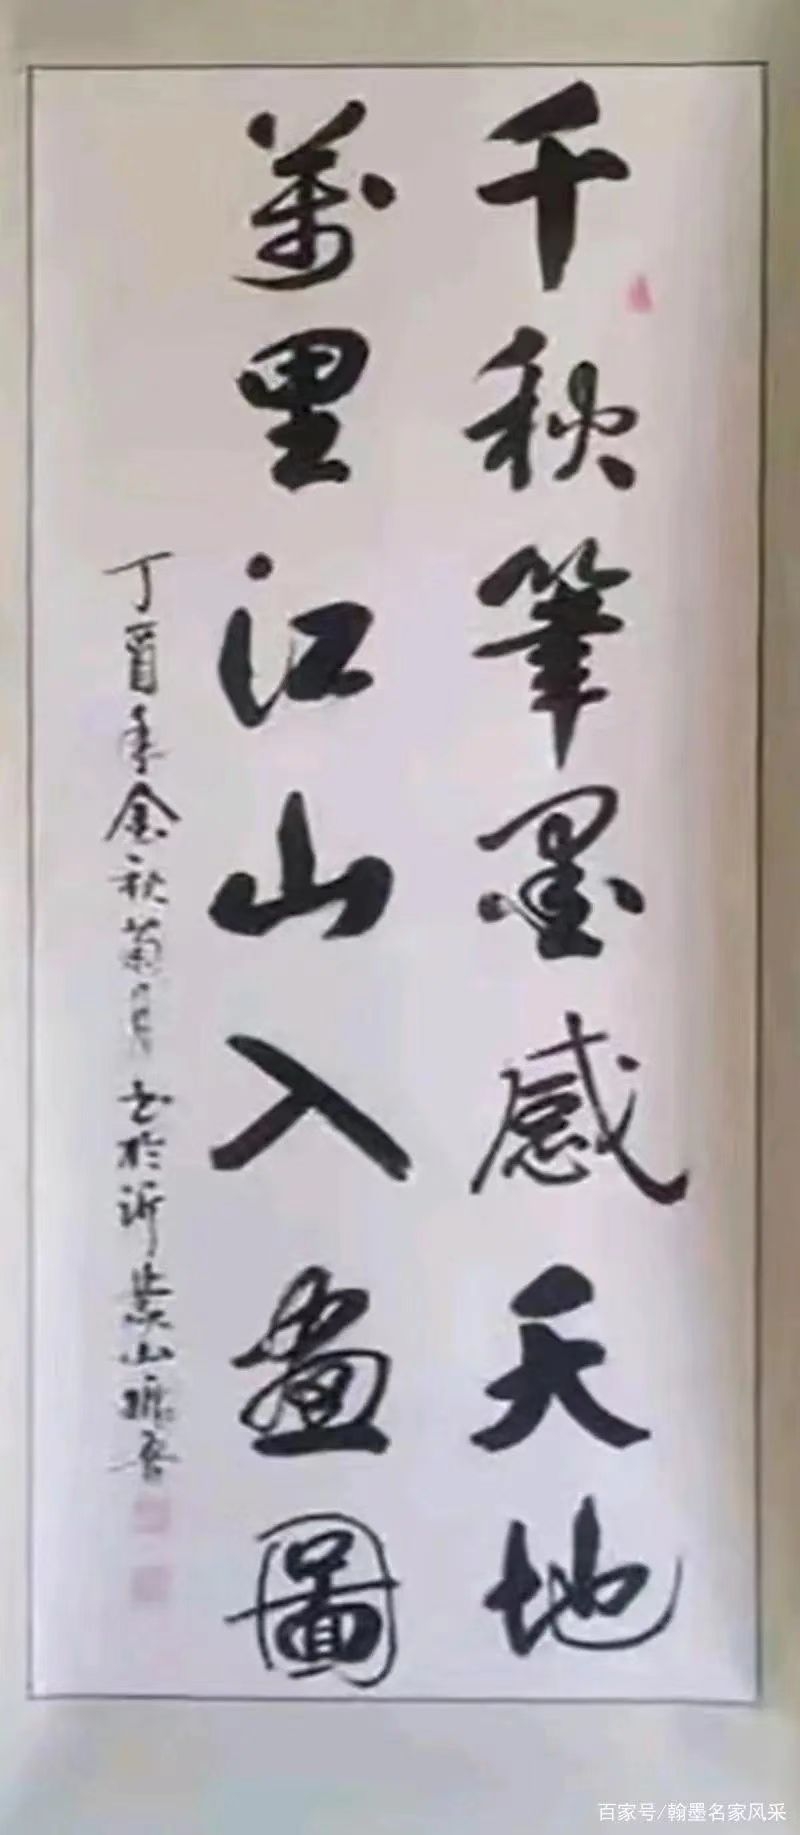 千秋筆墨感天地
萬里江山入畫圖
丁酉年金秋菊月書於沂蒙山
百家号/翰墨名家风采